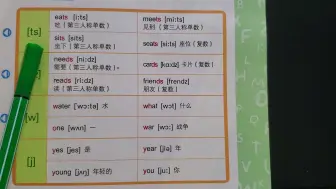 [ts]
eats [i:ts]
吃（第三人称单数）
meets [mi:ts]
见到（第三人称单数）
sits [sits]
坐下（第三人称单数）
seats [si:ts] 座位（复数）
needs [ni:dz]
需要（第三人称单数）
cards [kɑ:dz] 卡片（复数）
reads [ri:dz]
读（第三人称单数）
friends [frendz]
朋友（复数）
[w]
water [wɔ:tə] 水
what [wɔt] 什么
one [wʌn] 一
war [wɔ:] 战争
[j]
yes [jes] 是
year [jiə] 年
young [jʌŋ] 年轻的
you [ju:] 你